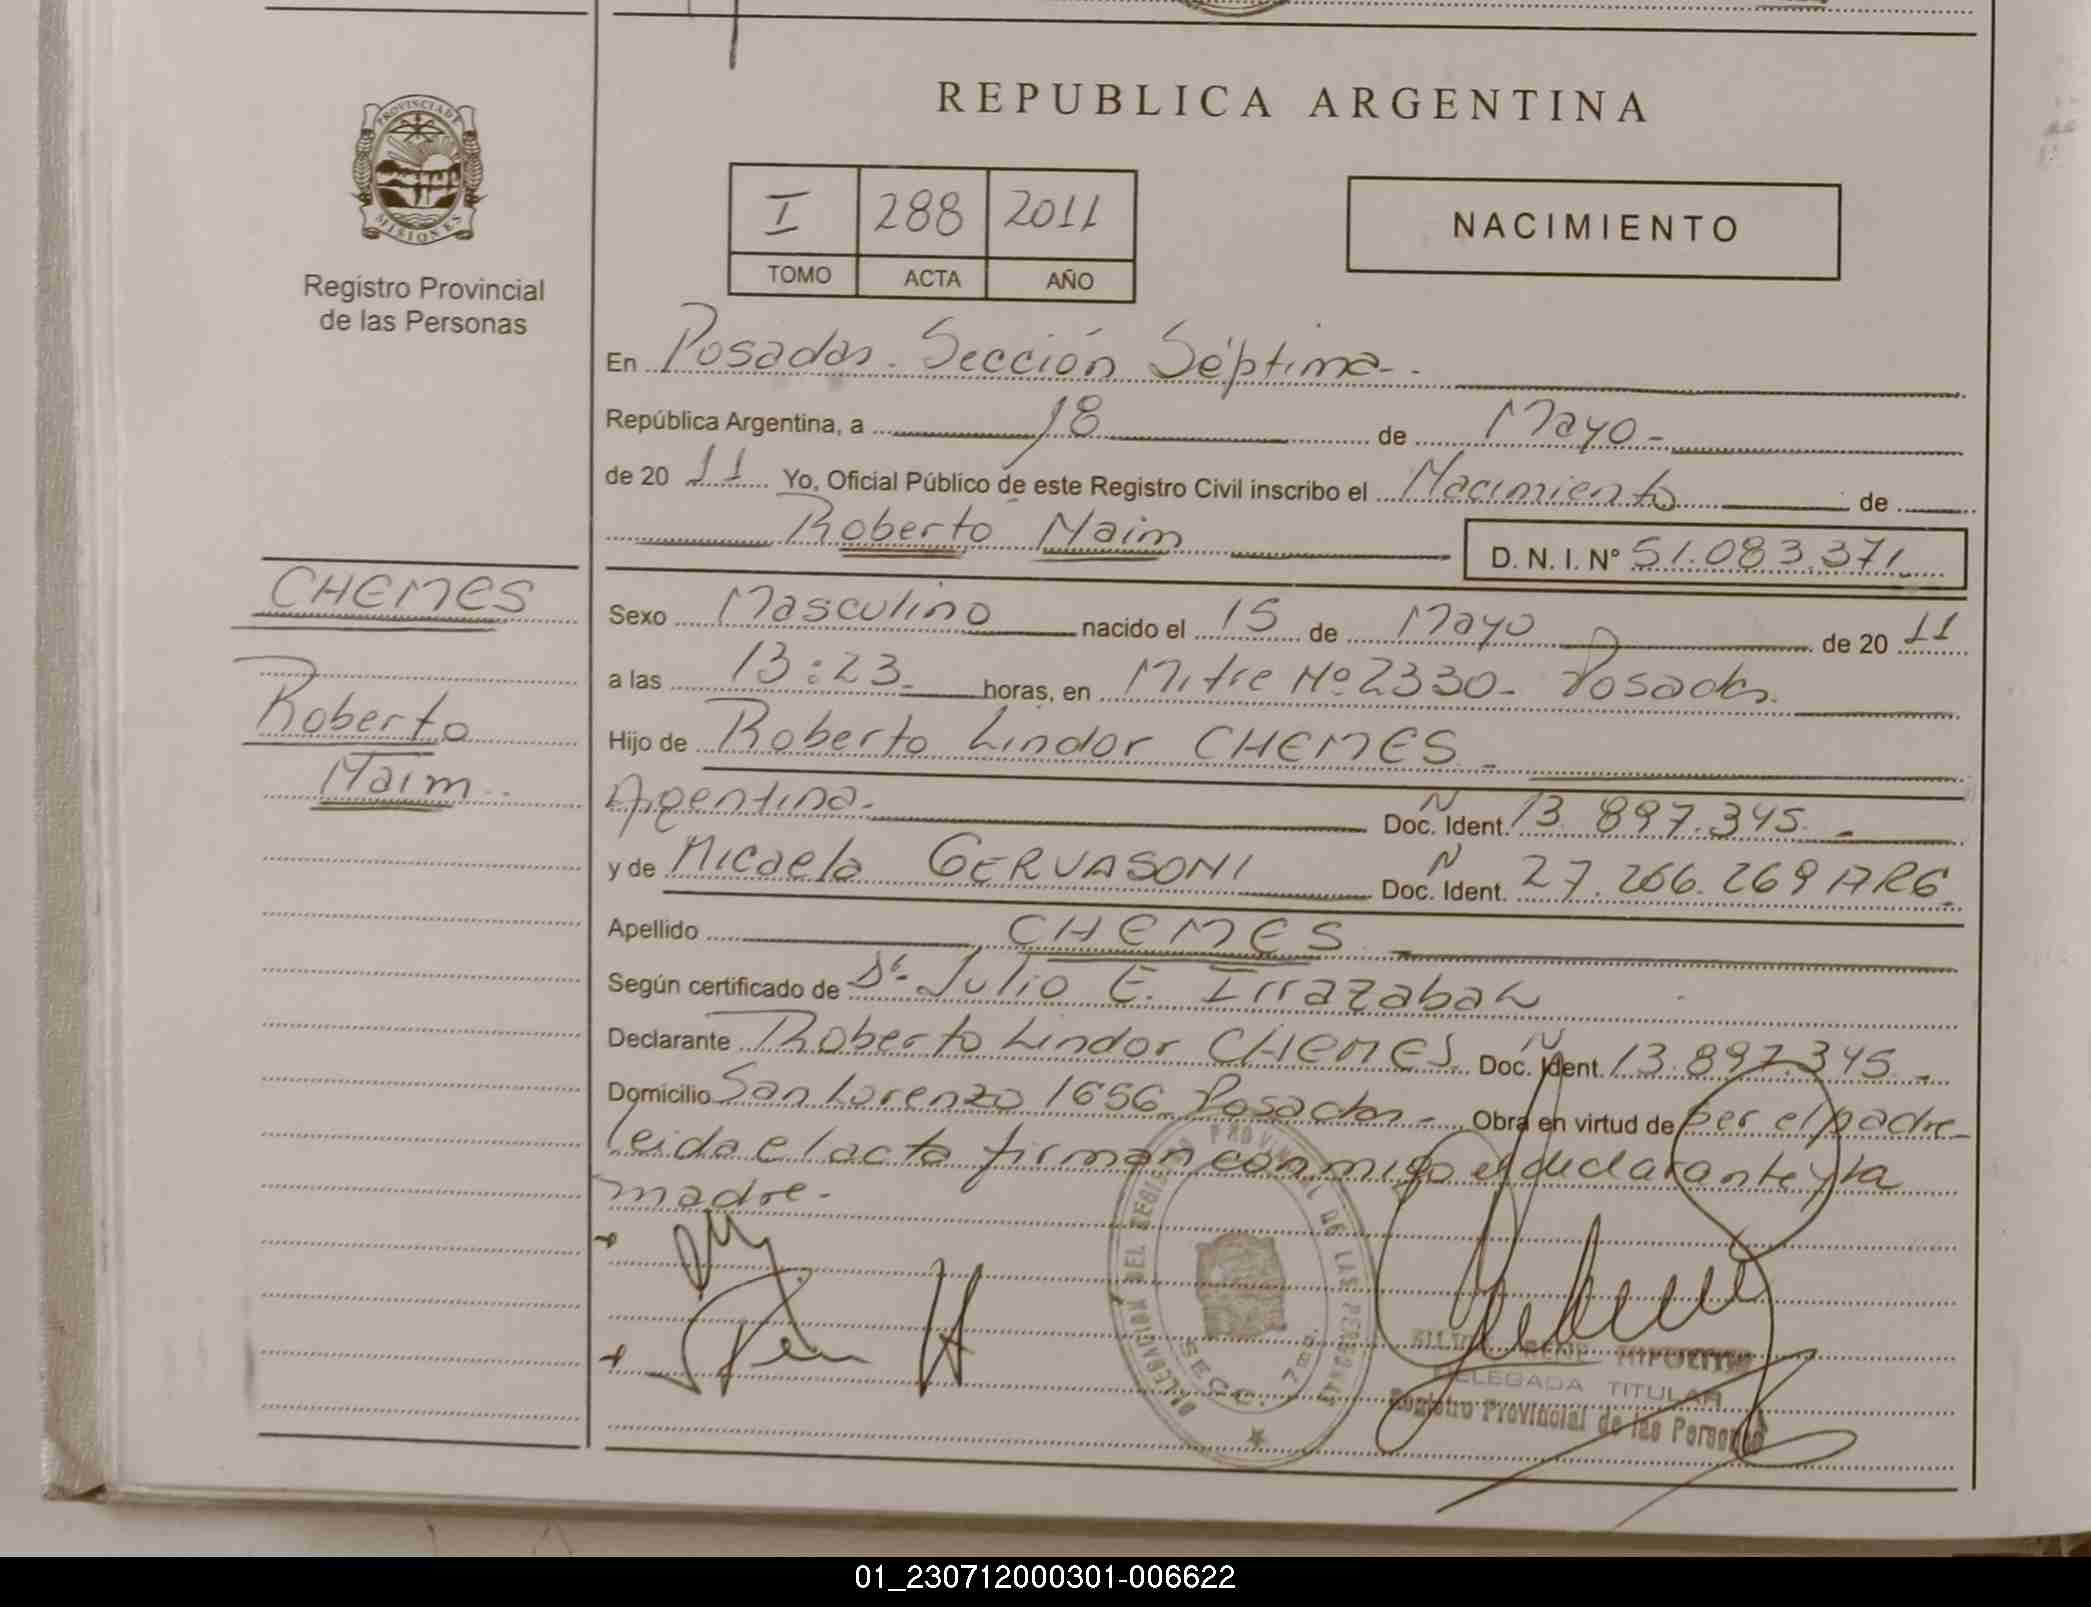 PROVINCIA DE
MISIONES
Registro Provincial
de las Personas
REPUBLICA ARGENTINA
I 288 2011
TOMO ACTA AÑO
NACIMIENTO
En Posadas. Sección Séptima.-
República Argentina, a 18 de Mayo-
de 20 11 Yo, Oficial Público de este Registro Civil inscribo el Nacimiento de
Roberto Naim D. N. I. Nº 51.083.371
CHEMES
Roberto
Naim
Sexo Masculino nacido el 15 de Mayo de 20 11
a las 13:23 horas, en Mitre Nº 2330- Posadas.
Hijo de Roberto Lindor CHEMES -
Argentina. Doc. Ident. N 13.897.345. -
y de Micaela GERVASONI Doc. Ident. N 27.266.269 ARG.
Apellido CHEMES
Según certificado de Dr. Julio E. Irrazabal
Declarante Roberto Lindor CHEMES Doc. Ident. N 13.897.345. -
Domicilio San Lorenzo 1656 Posadas- Obra en virtud de ser el padre-
leida el acta firman conmigo el declarante y la
madre.-
DELEGACION DEL REGISTRO PROVINCIAL DE LAS PERSONAS
SECC. 7ma
DELEGADA TITULAR
Registro Provincial de las Personas
01_230712000301-006622